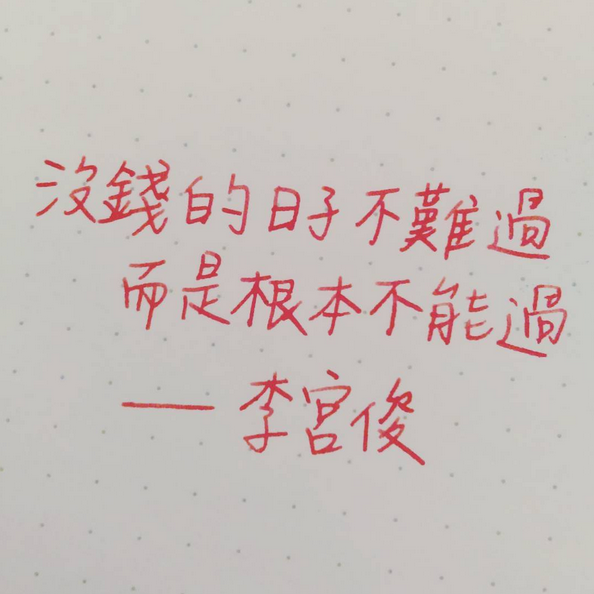 沒錢的日子不難過
而是根本不能過
—— 李宮俊